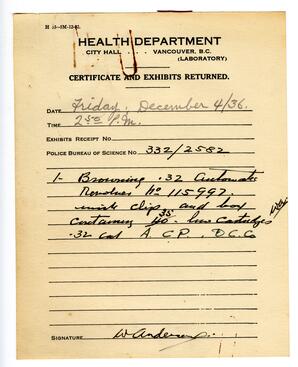 HEALTH DEPARTMENT
CITY HALL .... VANCOUVER, B.C.
(LABORATORY)
CERTIFICATE AND EXHIBITS RETURNED.
DATE Friday, December 4/36.
TIME 2 P.M.
EXHIBITS RECEIPT NO.
POLICE BUREAU OF SCIENCE NO. 332/2582
1- Browning .32 Automatic
Revolver No 115997.
with clip, and box
containing 35 live cartridges
.32 cal A.C.P.
SIGNATURE W Anderson.